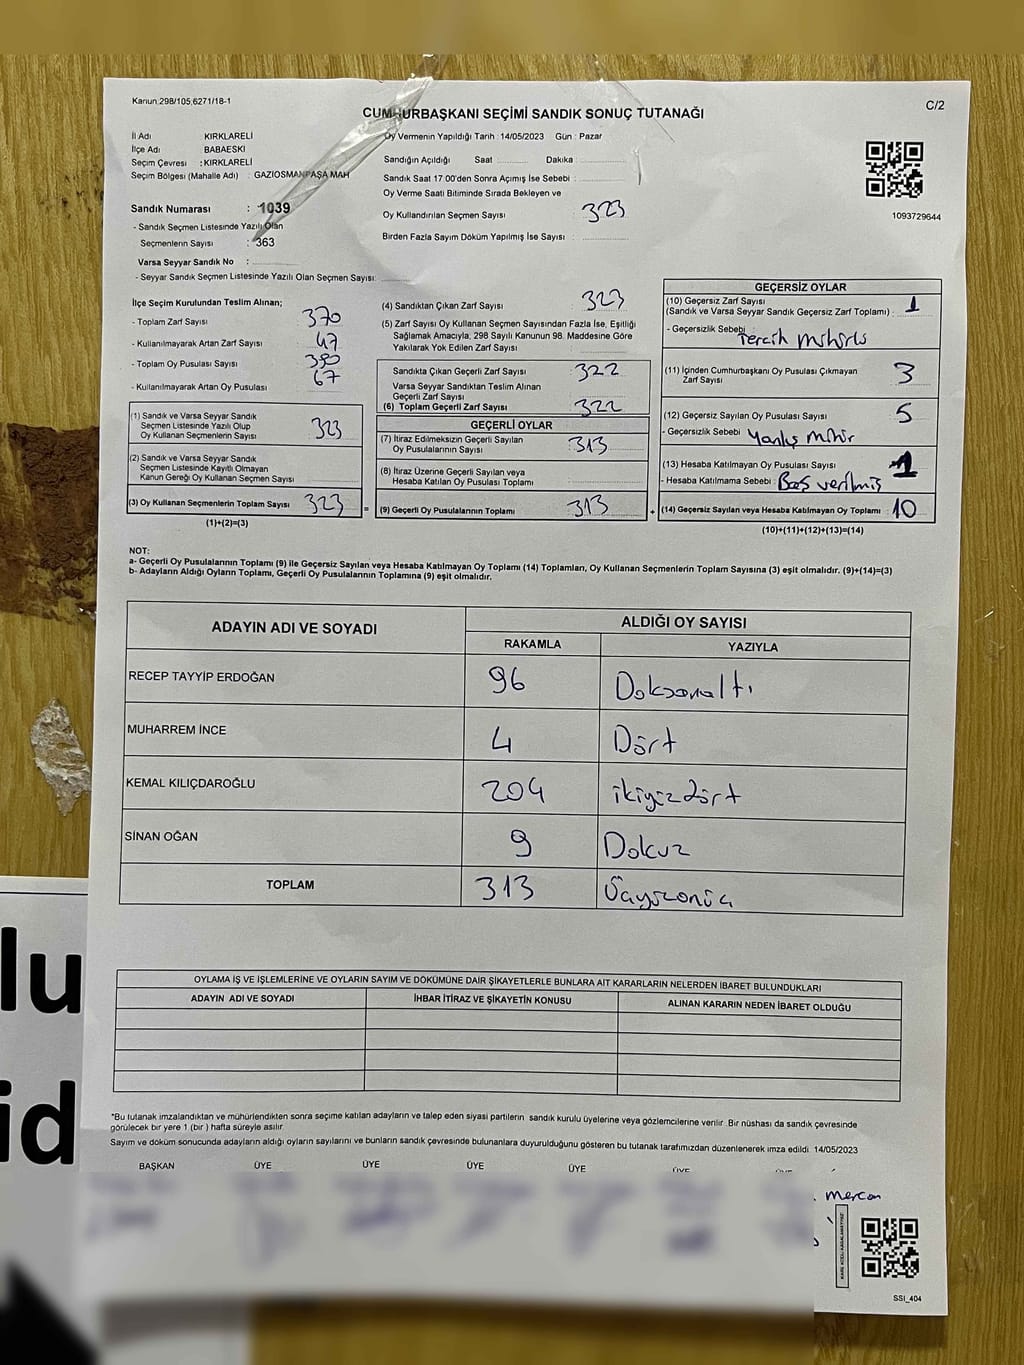 Kanun:298/105;6271/18-1
C/2
CUMHURBAŞKANI SEÇİMİ SANDIK SONUÇ TUTANAĞI
İl Adı KIRKLARELİ
İlçe Adı BABAESKİ
Seçim Çevresi : KIRKLARELİ
Seçim Bölgesi (Mahalle Adı) : GAZİOSMANPAŞA MAH
Oy Vermenin Yapıldığı Tarih : 14/05/2023 Gün : Pazar
Sandığın Açıldığı Saat Dakika :
Sandık Saat 17:00'den Sonra Açımış İse Sebebi :
Oy Verme Saati Bitiminde Sırada Bekleyen ve
Oy Kullandırılan Seçmen Sayısı 323
Birden Fazla Sayım Döküm Yapılmış İse Sayısı :
1093729644
Sandık Numarası : 1039
- Sandık Seçmen Listesinde Yazılı Olan
Seçmenlerin Sayısı : 363
Varsa Seyyar Sandık No :
- Seyyar Sandık Seçmen Listesinde Yazılı Olan Seçmen Sayısı:
İlçe Seçim Kurulundan Teslim Alınan;
- Toplam Zarf Sayısı 370
- Kullanılmayarak Artan Zarf Sayısı 47
- Toplam Oy Pusulası Sayısı 390
- Kullanılmayarak Artan Oy Pusulası 67
(1) Sandık ve Varsa Seyyar Sandık
Seçmen Listesinde Yazılı Olup
Oy Kullanan Seçmenlerin Sayısı 323
(2) Sandık ve Varsa Seyyar Sandık
Seçmen Listesinde Kayıtlı Olmayan
Kanun Gereği Oy Kullanan Seçmen Sayısı
(3) Oy Kullanan Seçmenlerin Toplam Sayısı 323 =
(1)+(2)=(3)
(4) Sandıktan Çıkan Zarf Sayısı 323
(5) Zarf Sayısı Oy Kullanan Seçmen Sayısından Fazla İse, Eşitliği
Sağlamak Amacıyla, 298 Sayılı Kanunun 98. Maddesine Göre
Yakılarak Yok Edilen Zarf Sayısı
Sandıkta Çıkan Geçerli Zarf Sayısı 322
Varsa Seyyar Sandıktan Teslim Alınan
Geçerli Zarf Sayısı
(6) Toplam Geçerli Zarf Sayısı 322
GEÇERLİ OYLAR
(7) İtiraz Edilmeksizin Geçerli Sayılan
Oy Pusulalarının Sayısı 313
(8) İtiraz Üzerine Geçerli Sayılan veya
Hesaba Katılan Oy Pusulası Toplamı
(9) Geçerli Oy Pusulalarının Toplamı 313 +
GEÇERSİZ OYLAR
(10) Geçersiz Zarf Sayısı
(Sandık ve Varsa Seyyar Sandık Geçersiz Zarf Toplamı) : 1
- Geçersizlik Sebebi Tercih Mühürlü
(11) İçinden Cumhurbaşkanı Oy Pusulası Çıkmayan
Zarf Sayısı 3
(12) Geçersiz Sayılan Oy Pusulası Sayısı 5
- Geçersizlik Sebebi Yanlış Mühür
(13) Hesaba Katılmayan Oy Pusulası Sayısı 1
- Hesaba Katılmama Sebebi : Boş verilmiş
(14) Geçersiz Sayılan veya Hesaba Katılmayan Oy Toplamı 10
(10)+(11)+(12)+(13)=(14)
NOT:
a- Geçerli Oy Pusulalarının Toplamı (9) ile Geçersiz Sayılan veya Hesaba Katılmayan Oy Toplamı (14) Toplamları, Oy Kullanan Seçmenlerin Toplam Sayısına (3) eşit olmalıdır. (9)+(14)=(3)
b- Adayların Aldığı Oyların Toplamı, Geçerli Oy Pusulalarının Toplamına (9) eşit olmalıdır.
ADAYIN ADI VE SOYADI ALDIĞI OY SAYISI
RAKAMLA YAZIYLA
RECEP TAYYİP ERDOĞAN 96 Doksanaltı
MUHARREM İNCE 4 Dört
KEMAL KILIÇDAROĞLU 204 ikiyüzdört
SİNAN OĞAN 9 Dokuz
TOPLAM 313 Üçyüzonüç
OYLAMA İŞ VE İŞLEMLERİNE VE OYLARIN SAYIM VE DÖKÜMÜNE DAİR ŞİKAYETLERLE BUNLARA AİT KARARLARIN NELERDEN İBARET BULUNDUKLARI
ADAYIN ADI VE SOYADI İHBAR İTİRAZ VE ŞİKAYETİN KONUSU ALINAN KARARIN NEDEN İBARET OLDUĞU
*Bu tutanak imzalandıktan ve mühürlendikten sonra seçime katılan adayların ve talep eden siyasi partilerin sandık kurulu üyelerine veya gözlemcilerine verilir. Bir nüshası da sandık çevresinde
görülecek bir yere 1 (bir) hafta süreyle asılır.
Sayım ve döküm sonucunda adayların aldığı oyların sayılarını ve bunların sandık çevresinde bulunanlara duyurulduğunu gösteren bu tutanak tarafımızdan düzenlenerek imza edildi. 14/05/2023
BAŞKAN ÜYE ÜYE ÜYE ÜYE ÜYE
Mercan
SSI_404
lu
id